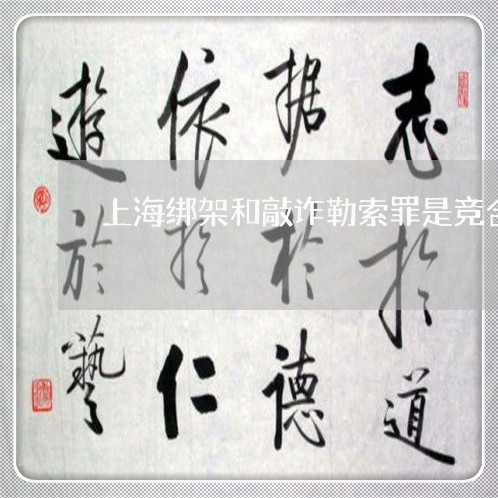 志於道
据於德
依於仁
遊於藝
上海绑架和敲诈勒索罪是竞